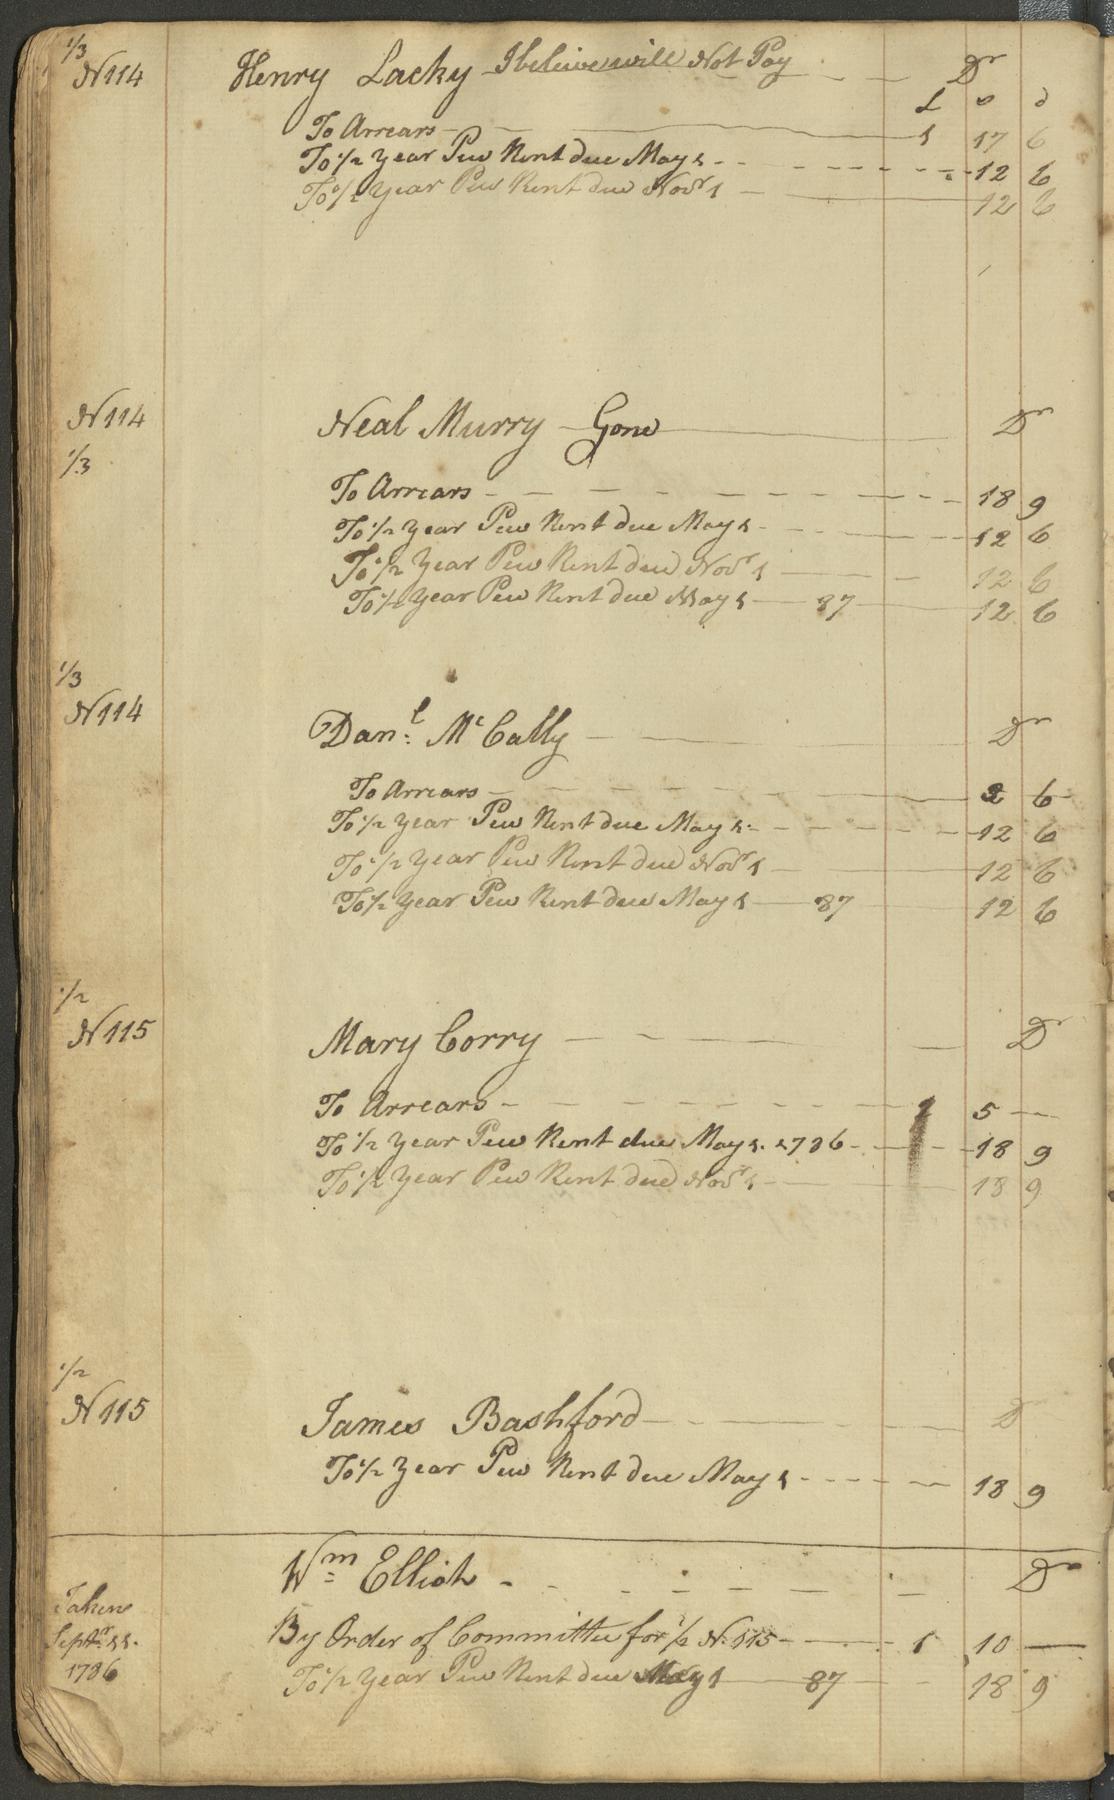 1/3
N114 Henry Lacky I beleive will Not Pay Dr
£ s d
To Arrears 1 17 6
To 1/2 year Pew Rent due May 1 12 6
To 1/2 year Pew Rent due Novr 1 12 6
N114 Neal Murry Gone Dr
1/3
To Arrears 18 9
To 1/2 year Pew Rent due May 1 12 6
To 1/2 year Pew Rent due Novr 1 12 6
To 1/2 year Pew Rent due May 1 87 12 6
1/3
N114 Danl: Mc Cally Dr
To Arrears 2 6
To 1/2 year Pew Rent due May 1 12 6
To 1/2 year Pew Rent due Novr 1 12 6
To 1/2 year Pew Rent due May 1 87 12 6
1/2
N115 Mary Corry Dr
To Arrears 1 5 —
To 1/2 year Pew Rent due May 1. 1786 18 9
To 1/2 year Pew Rent due Novr 1 18 9
1/2
N115 James Bashford Dr
To 1/2 year Pew Rent due May 1 18 9
Wm Elliot Dr
Taken
Septr 11. By Order of Committee for 1/2 N. 115 1 10 —
1786 To 1/2 year Pew Rent due May 1 87 18 9